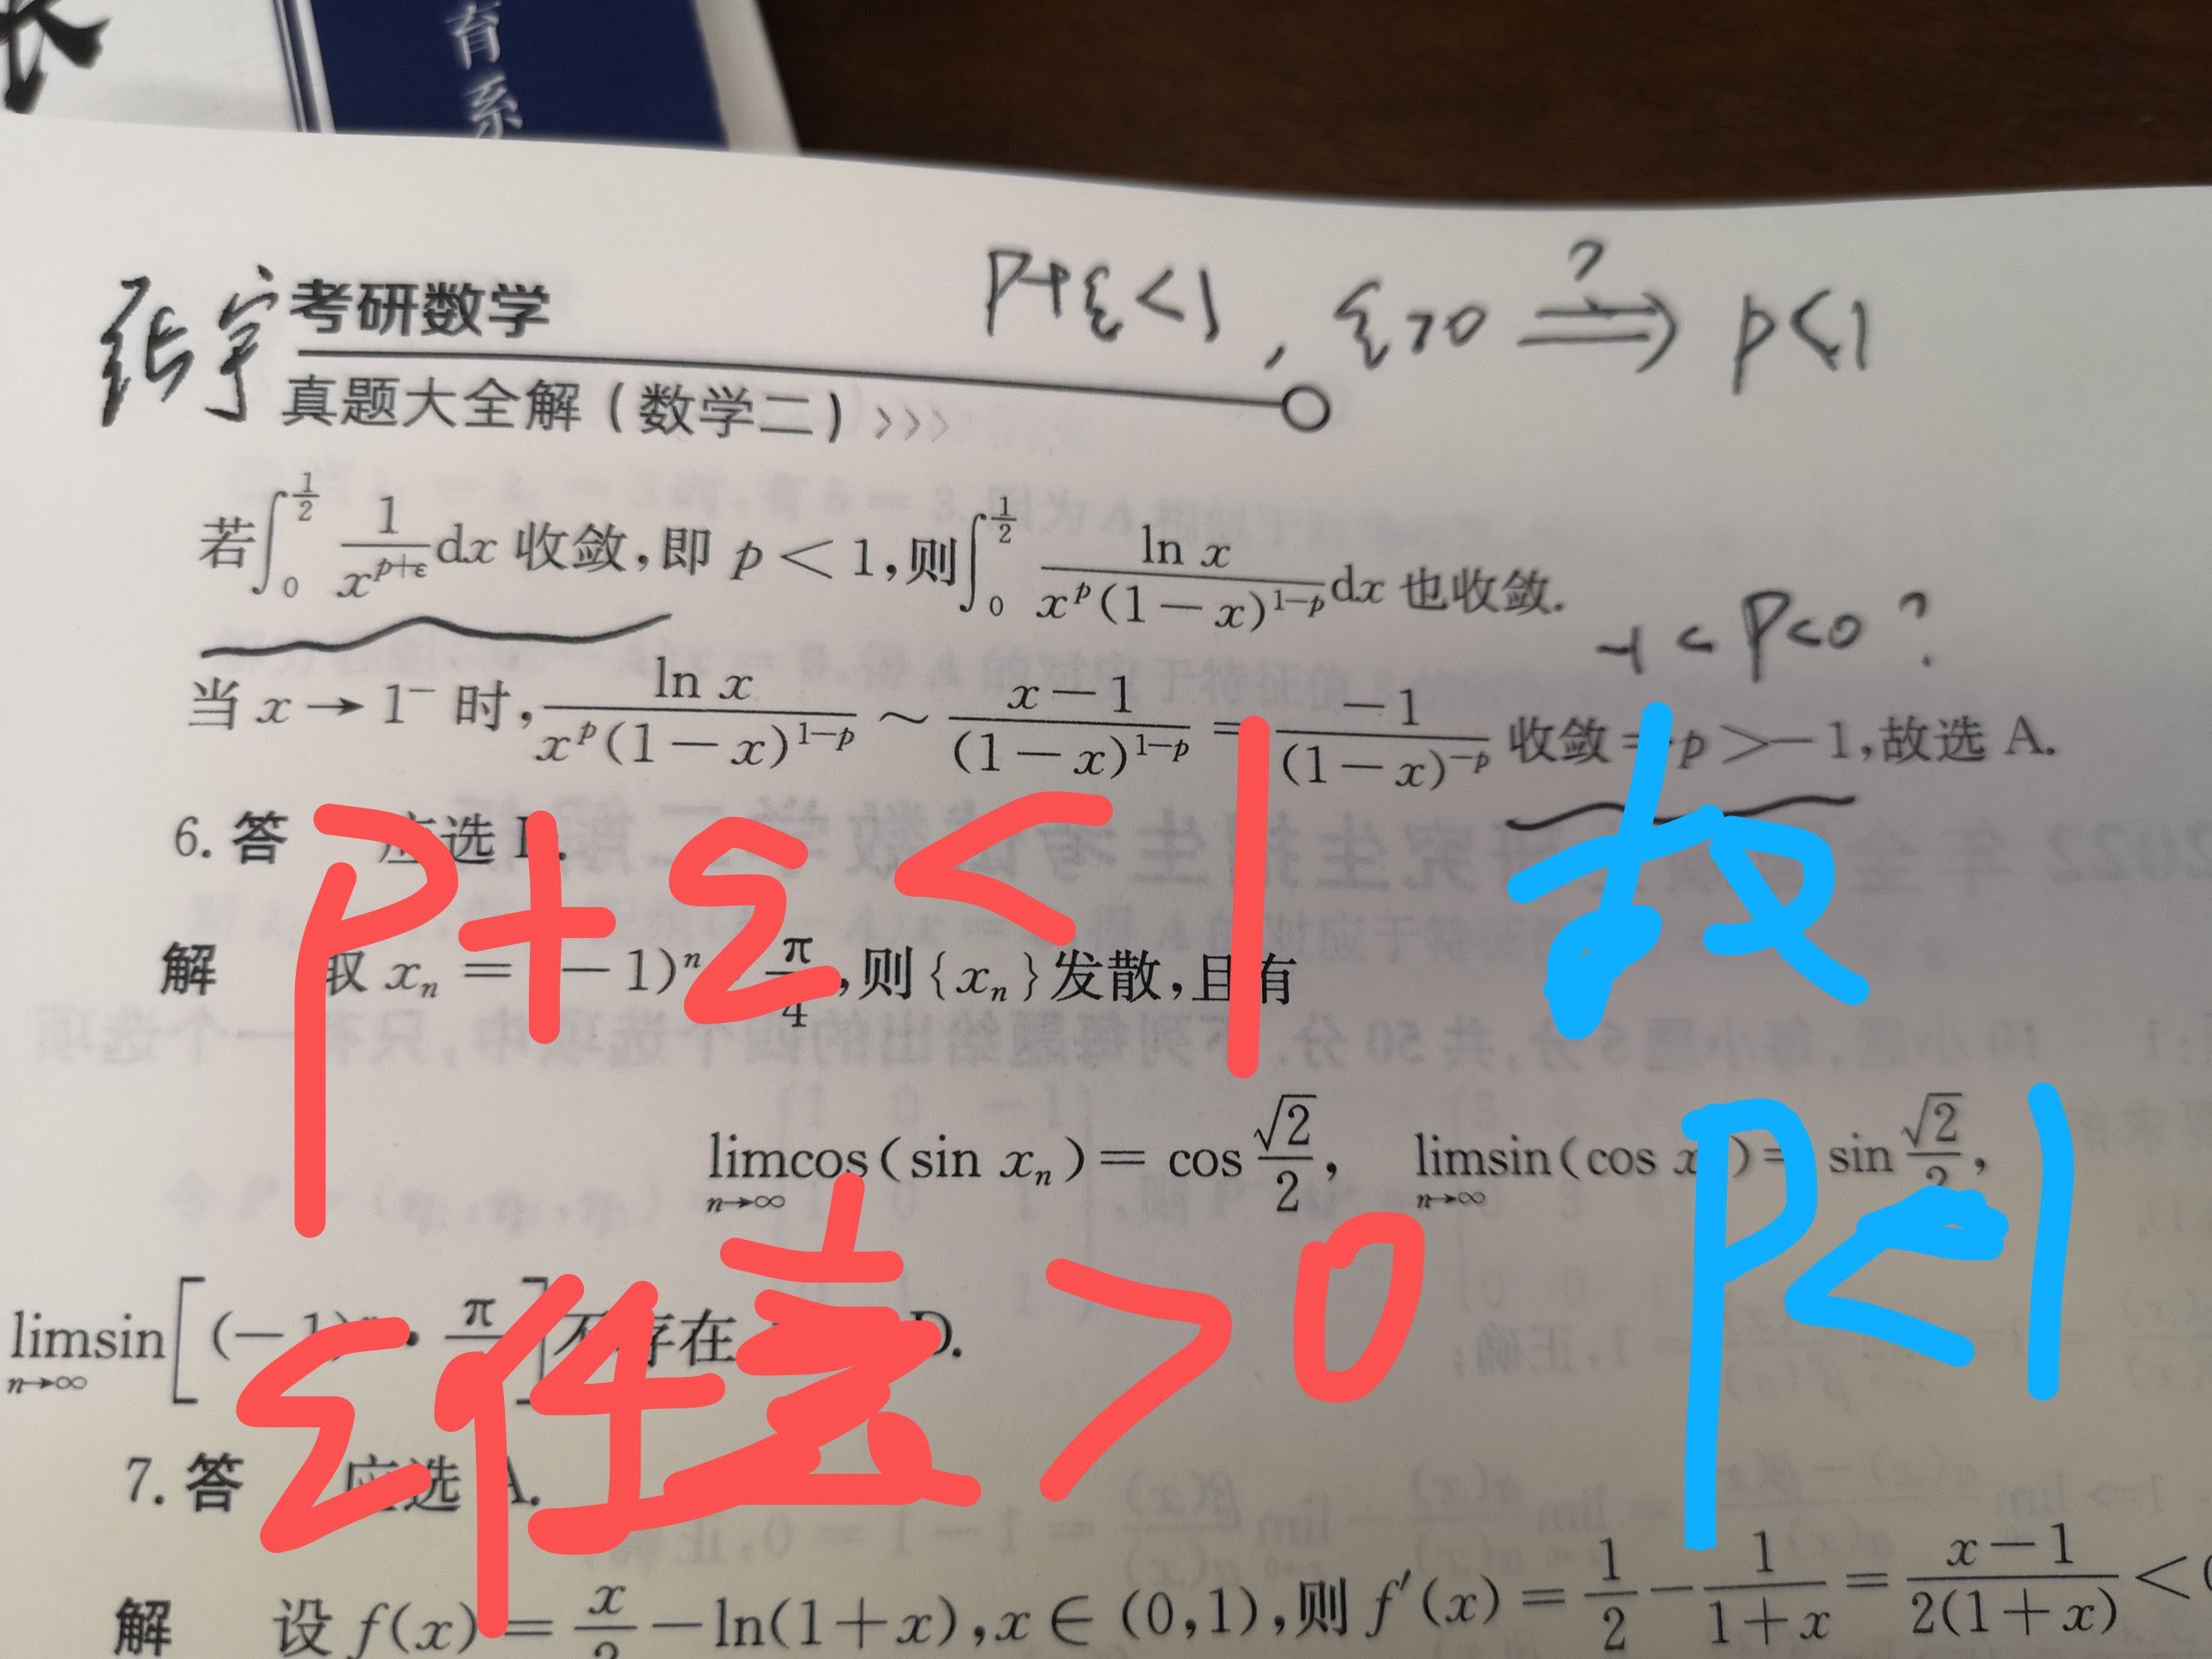 长
育系
张宇 考研数学
P+ε<1, ε>0 ⇒? p<1
真题大全解(数学二)>>>
若∫₀^{1/2} 1/x^{p+ε} dx 收敛,即 p<1,则∫₀^{1/2} ln x/(x^p(1-x)^{1-p}) dx 也收敛.
-1<P<0?
当 x→1⁻ 时, ln x/(x^p(1-x)^{1-p}) ~ (x-1)/(1-x)^{1-p} = -1/(1-x)^{-p} 收敛 p>-1,故选 A.
6. 答 应选
P+ε<1
故
解 取 xₙ = -1)ⁿ π/4,则{xₙ}发散,且有
lim_{n→∞} cos(sin xₙ) = cos √2/2, lim_{n→∞} sin(cos x )= sin √2/2,
P<1
ε任意>0
lim_{n→∞} sin[(-1)ⁿ·π ]不存在 D.
7. 答 应选 A.
解 设 f(x) = x/2 - ln(1+x),x∈(0,1),则 f′(x) = 1/2 - 1/(1+x) = (x-1)/(2(1+x)) <